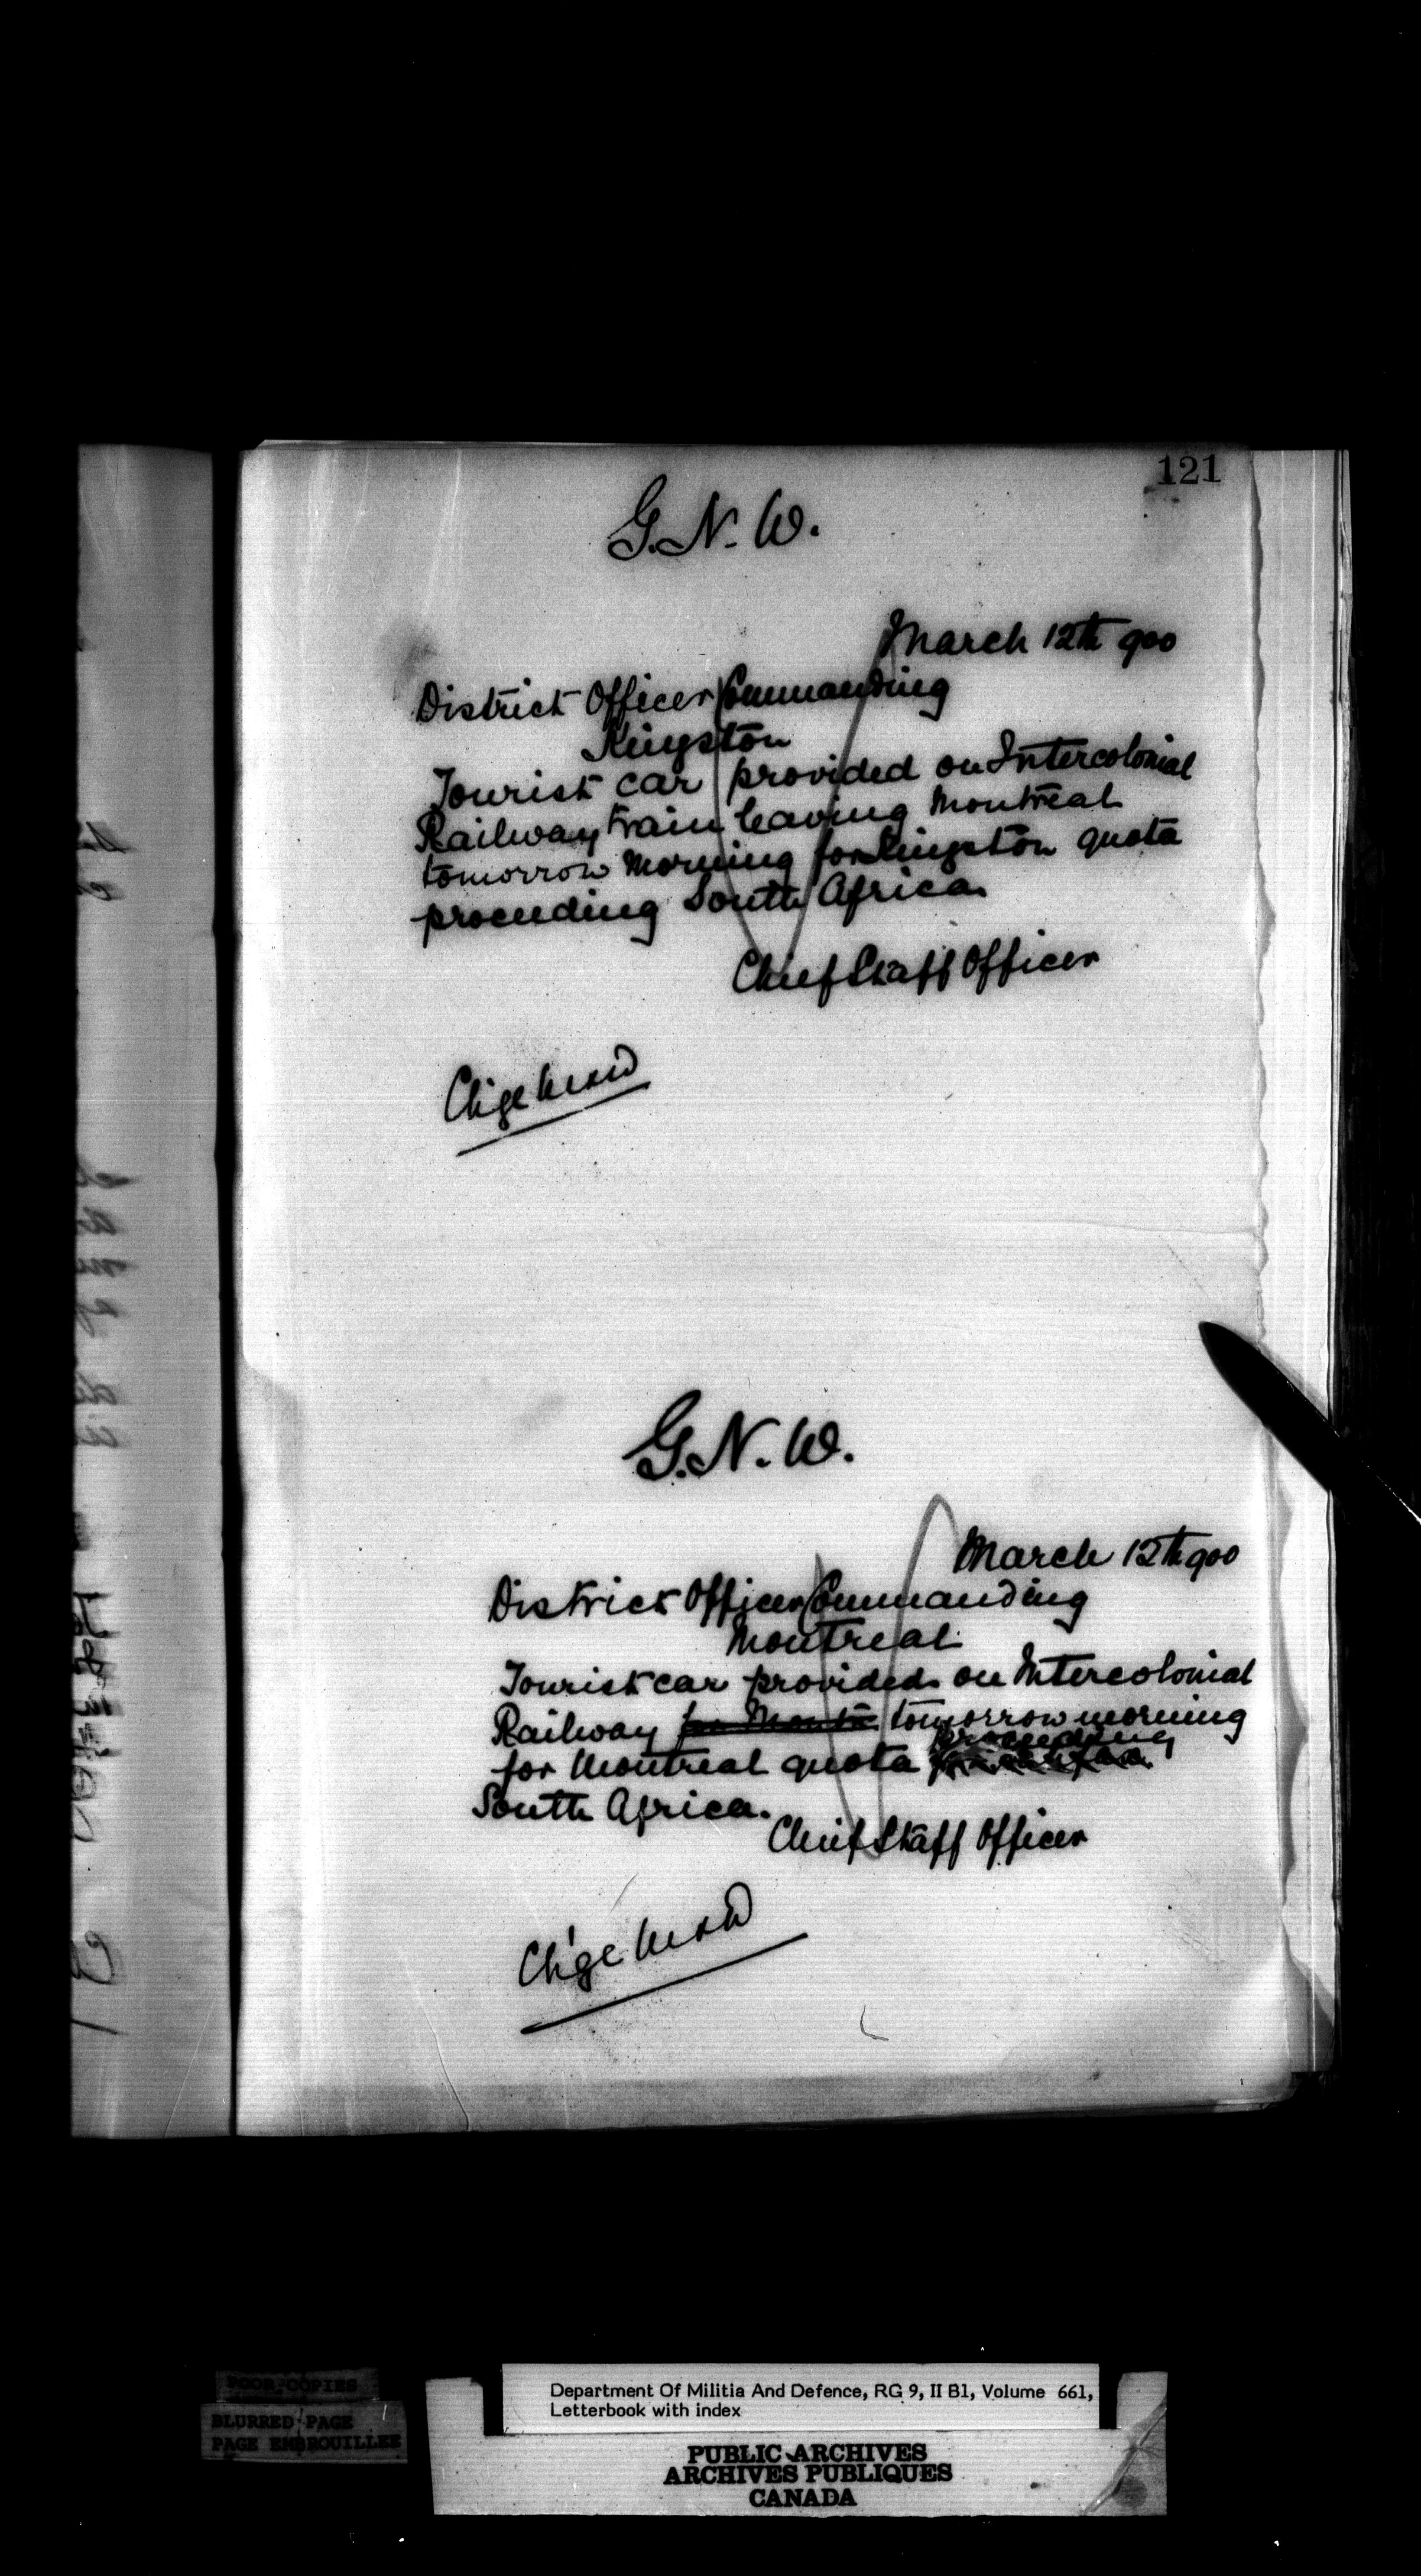 121
G.N.W.
March 12th 900
District Officer Commanding
Kingston
Tourist car provided on Intercolonial
Railway train leaving Montreal
tomorrow morning for Kingston quota
proceeding South Africa.
Chief Staff Officer
Chge M &
G.N.W.
March 12th 900
District Officer Commanding
Montreal
Tourist car provided on Intercolonial
Railway for Montr tomorrow morning
for Montreal quota proceeding
South Africa.
Chief Staff Officer
Ch'ge M &
POOR COPIES
BLURRED PAGE
PAGE EMBROUILLEE
Department Of Militia And Defence, RG 9, II B1, Volume 661,
Letterbook with index
PUBLIC ARCHIVES
ARCHIVES PUBLIQUES
CANADA